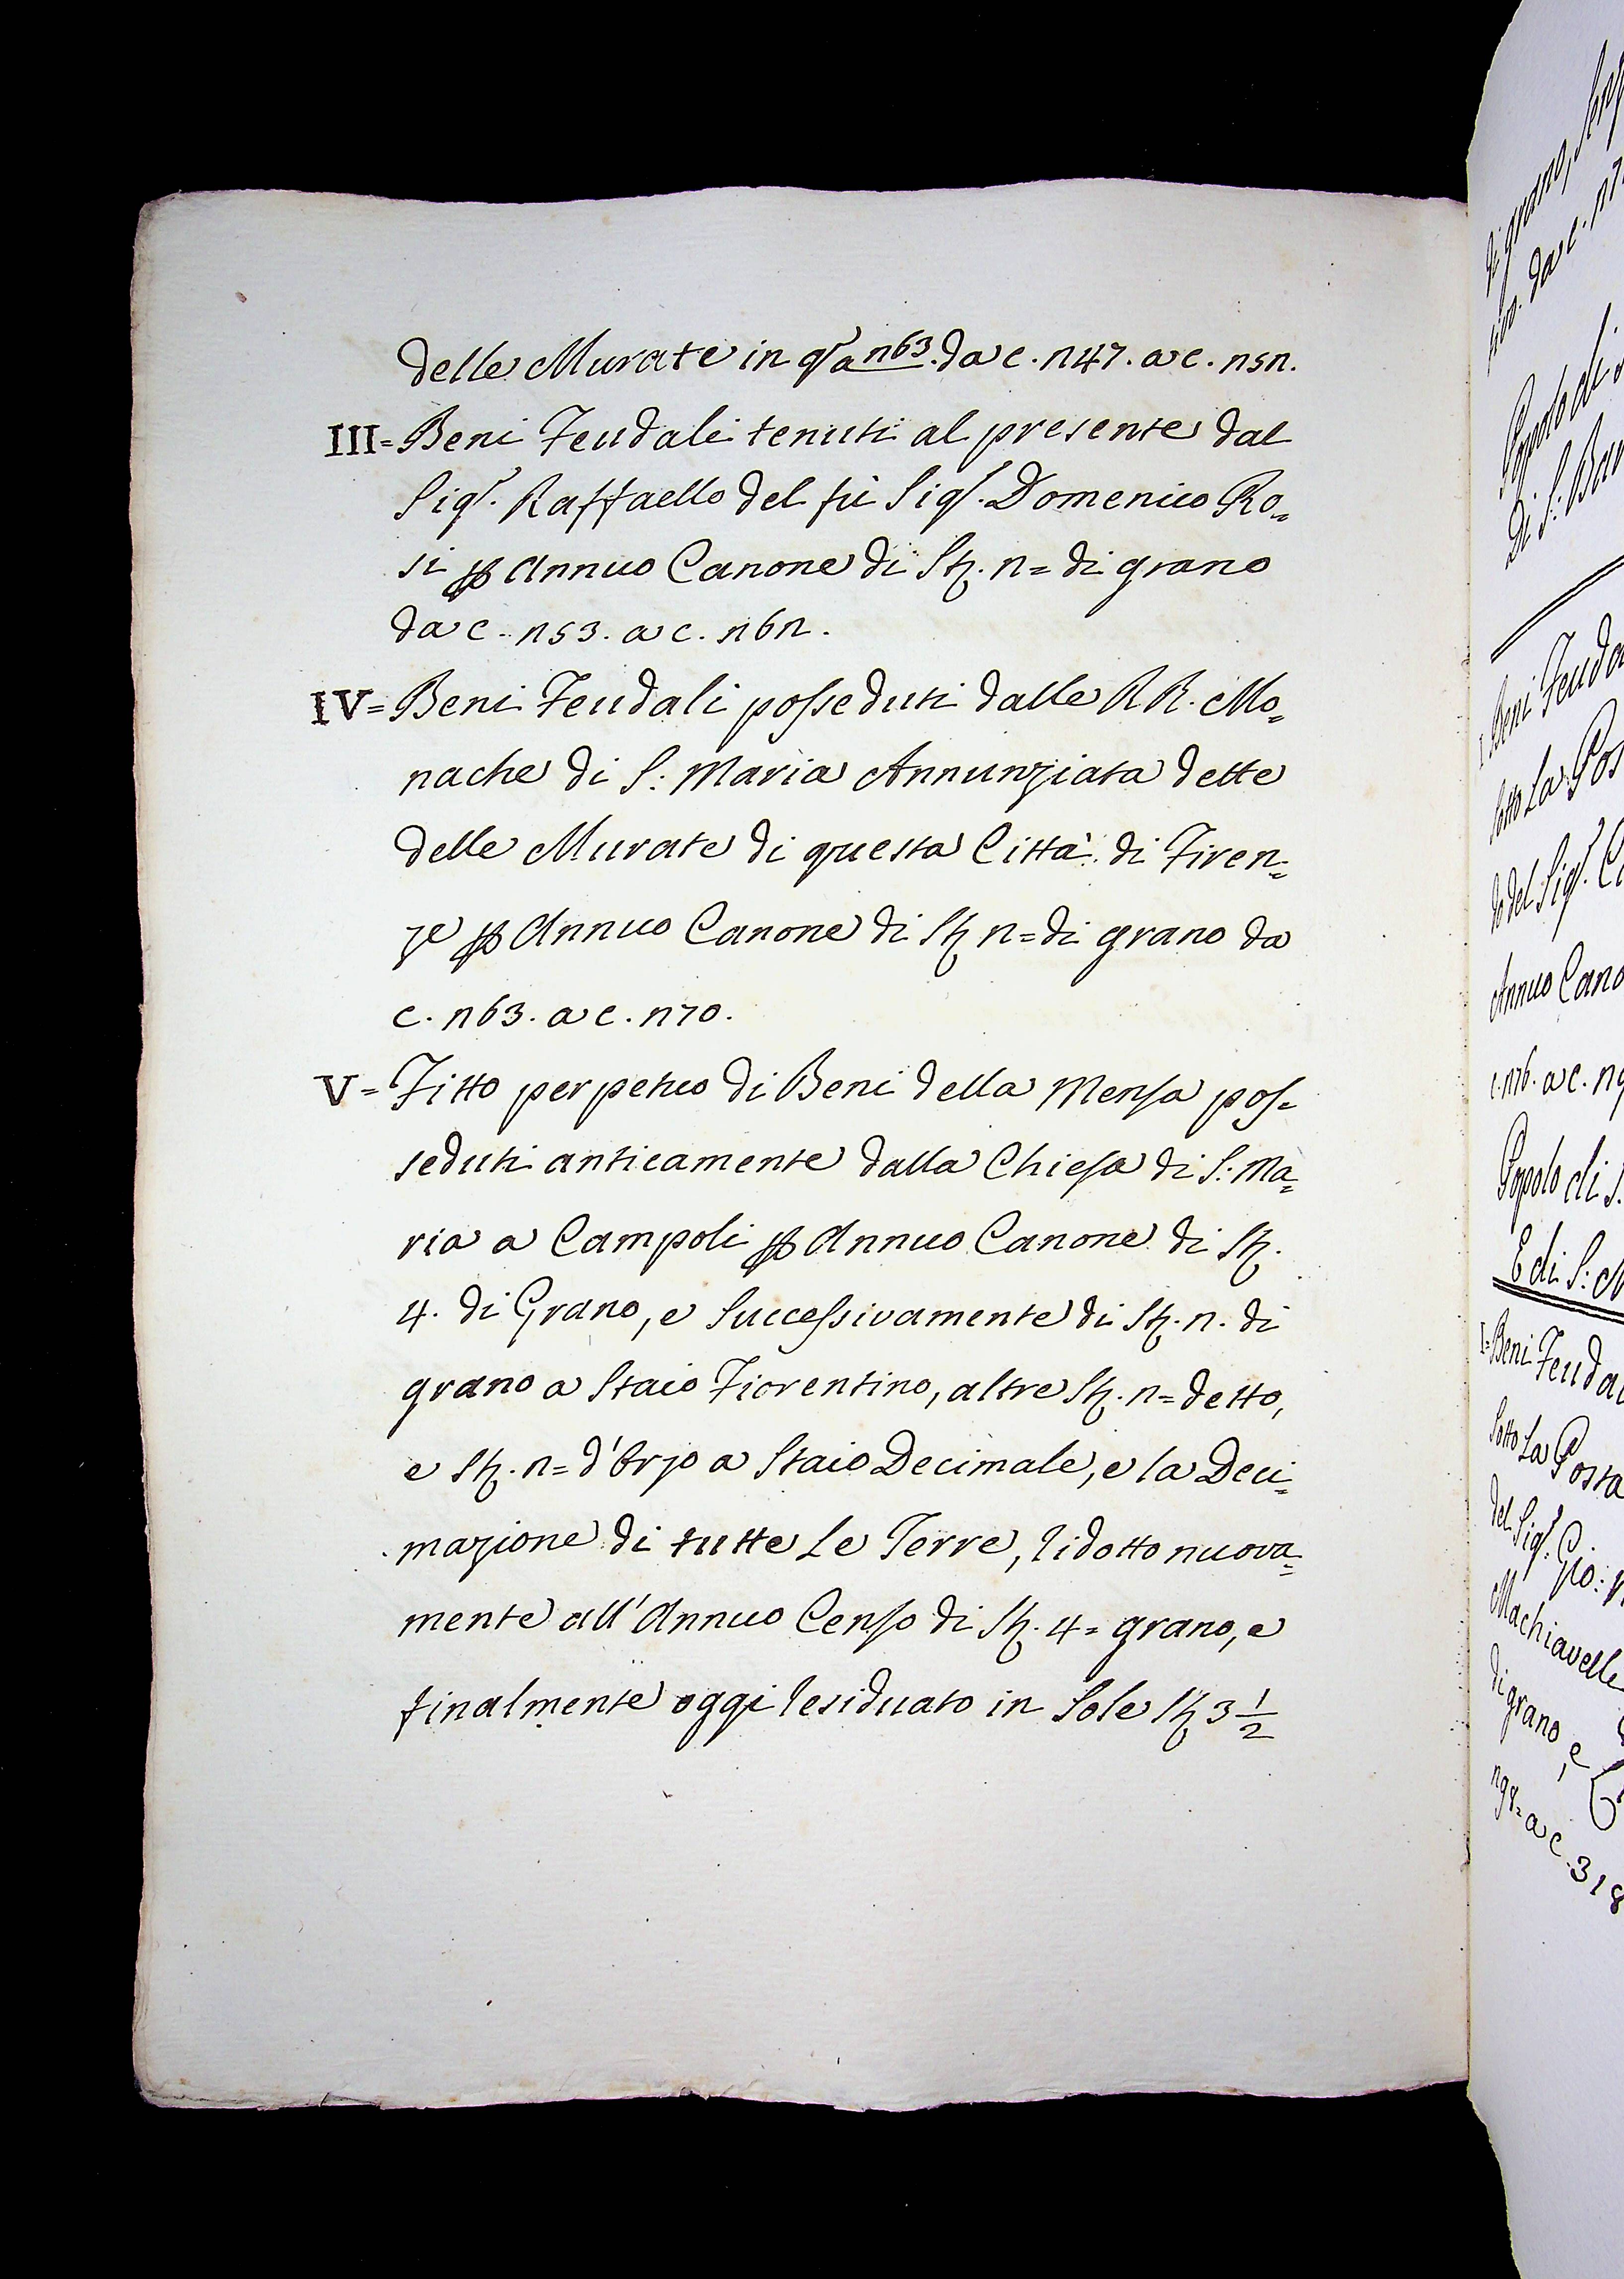 delle Murate in q.ª a 263. da c. 247. a c. 252.
III= Beni Feudali tenuti al presente dal
Sig.r Raffaello del fù Sig.r Domenico Ro=
si p Annuo Canone di St. 2= di grano
da c. 253. a c. 262.
IV= Beni Feudali posseduti dalle RR. Mo=
nache di S: Maria Annunziata dette
delle Murate di questa Città di Firen=
ze p Annuo Canone di St 2= di grano da
c. 263. a c. 270.
V= Fitto perpetuo di Beni della Mensa pos=
seduti anticamente dalla Chiesa di S: Ma=
ria a Campoli p Annuo Canone di St.
4. di Grano, e successivamente di St. 2. di
grano a Staio Fiorentino, altre St. 2= detto,
e St. 2= d'Orzo a Staio Decimale, e la Deci=
mazione di tutte Le Terre, ridotto nuova=
mente all'Annuo Censo di St. 4= grano, e
finalmente oggi residuato in Sole St 3 1/2
di grano,
da c. 27
Popolo di
Di S: Bar
I= Beni Feuda
sotto La Pos
do del Sig.r C
Annuo Cano
c. 276. a c. 29
Popolo di S.
E di S: M
I= Beni Feudal
Sotto La Posta
del Sig.r Gio:
Machiavelli
di grano, e
298= a c. 318